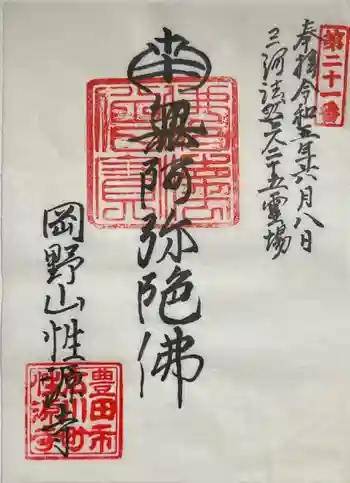 第二十一番
奉拝令和五年六月八日
三河法然上人二十五霊場
南無阿弥陀佛
岡野山性源寺
佛法僧寶
豊田市
性源寺